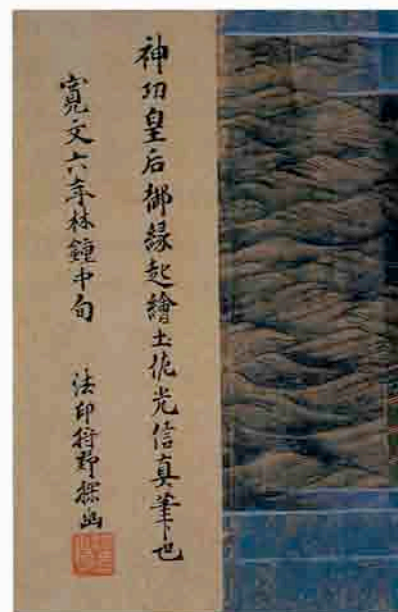 神功皇后御縁起繪土佐光信真筆也
寛文六年林鐘中旬　法印狩野探幽